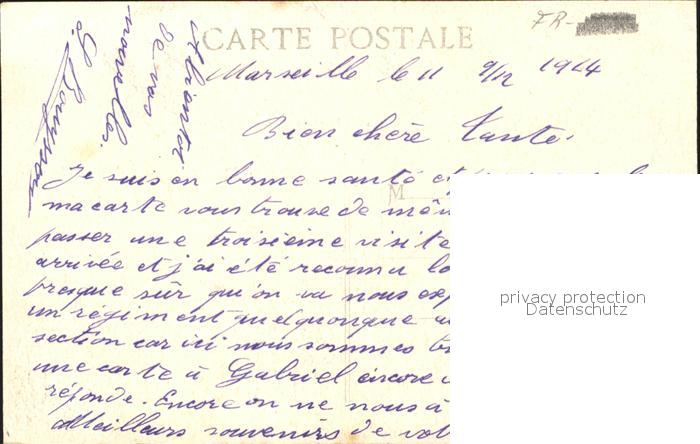 CARTE POSTALE
FR-
Marseille le 11 9/12 1914
Bien chère Tante.
Je suis en bonne santé et
M
ma carte vous trouve de mêm
passer une troisième visite
arrivée et j'ai été reconnu bo
presque sûr qu'on va nous exp
un régiment quelquonque
section car ici nous sommes tr
une carte à Gabriel encore
réponde. Encore on ne nous a
Meilleurs souvenirs de vot
de vos
nouvelles.
privacy protection
Datenschutz